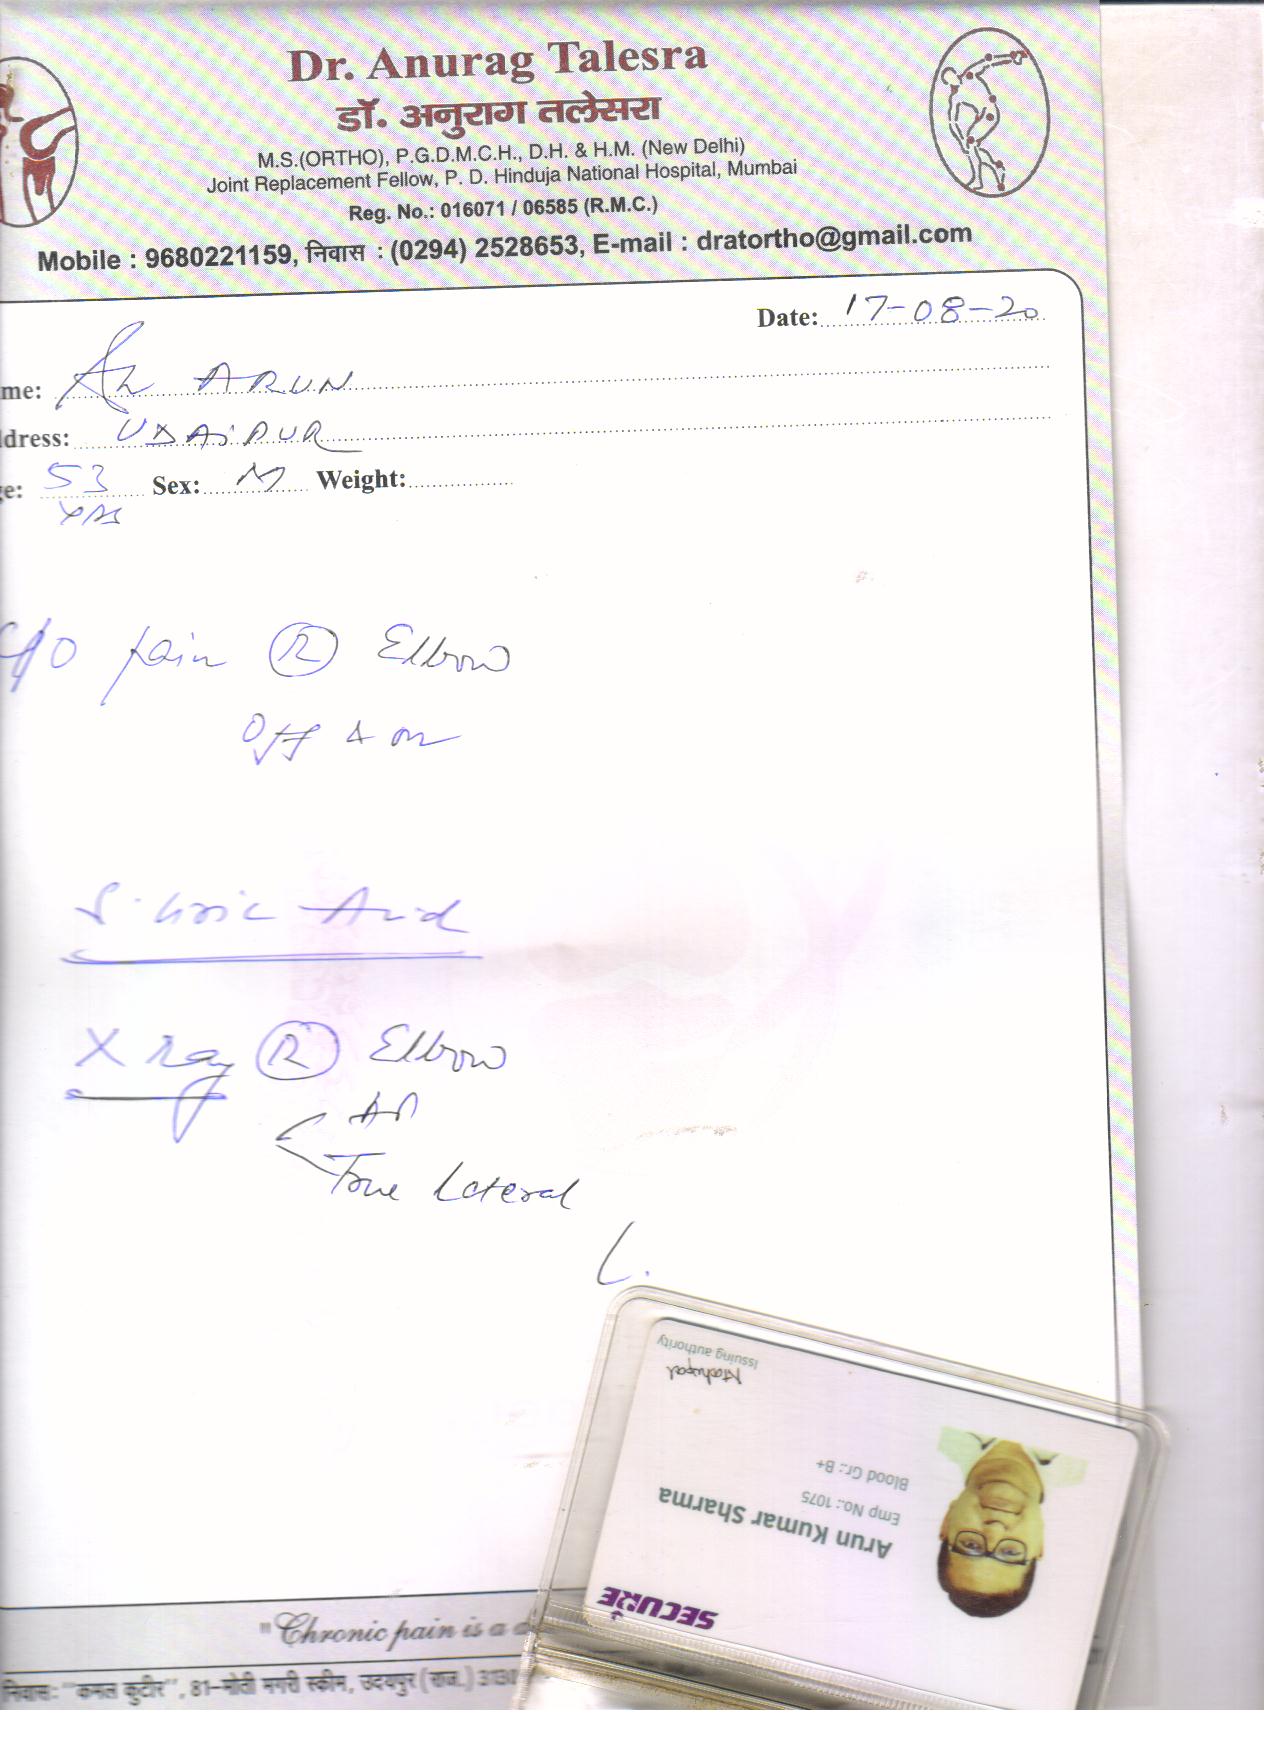 Dr. Anurag Talesra
डॉ. अनुराग तलेसरा
M.S.(ORTHO), P.G.D.M.C.H., D.H. & H.M. (New Delhi)
Joint Replacement Fellow, P. D. Hinduja National Hospital, Mumbai
Reg. No.: 016071 / 06585 (R.M.C.)
Mobile : 9680221159, निवास : (0294) 2528653, E-mail : dratortho@gmail.com
Date: 17-08-20
me: ARUN
dress: UDAIPUR
e: 53 Sex: M Weight:
yrs
C/O pain R Elbow
Off & on
S. Uric Acid
X ray R Elbow
AP
True Lateral
Issuing authority
Blood Gr.: B+
Emp No.: 1075
Arun Kumar Sharma
SECURE
"Chronic pain is a d
निवास: "कमल कुटीर", 81-मोती मगरी स्कीम, उदयपुर (राज.) 3130